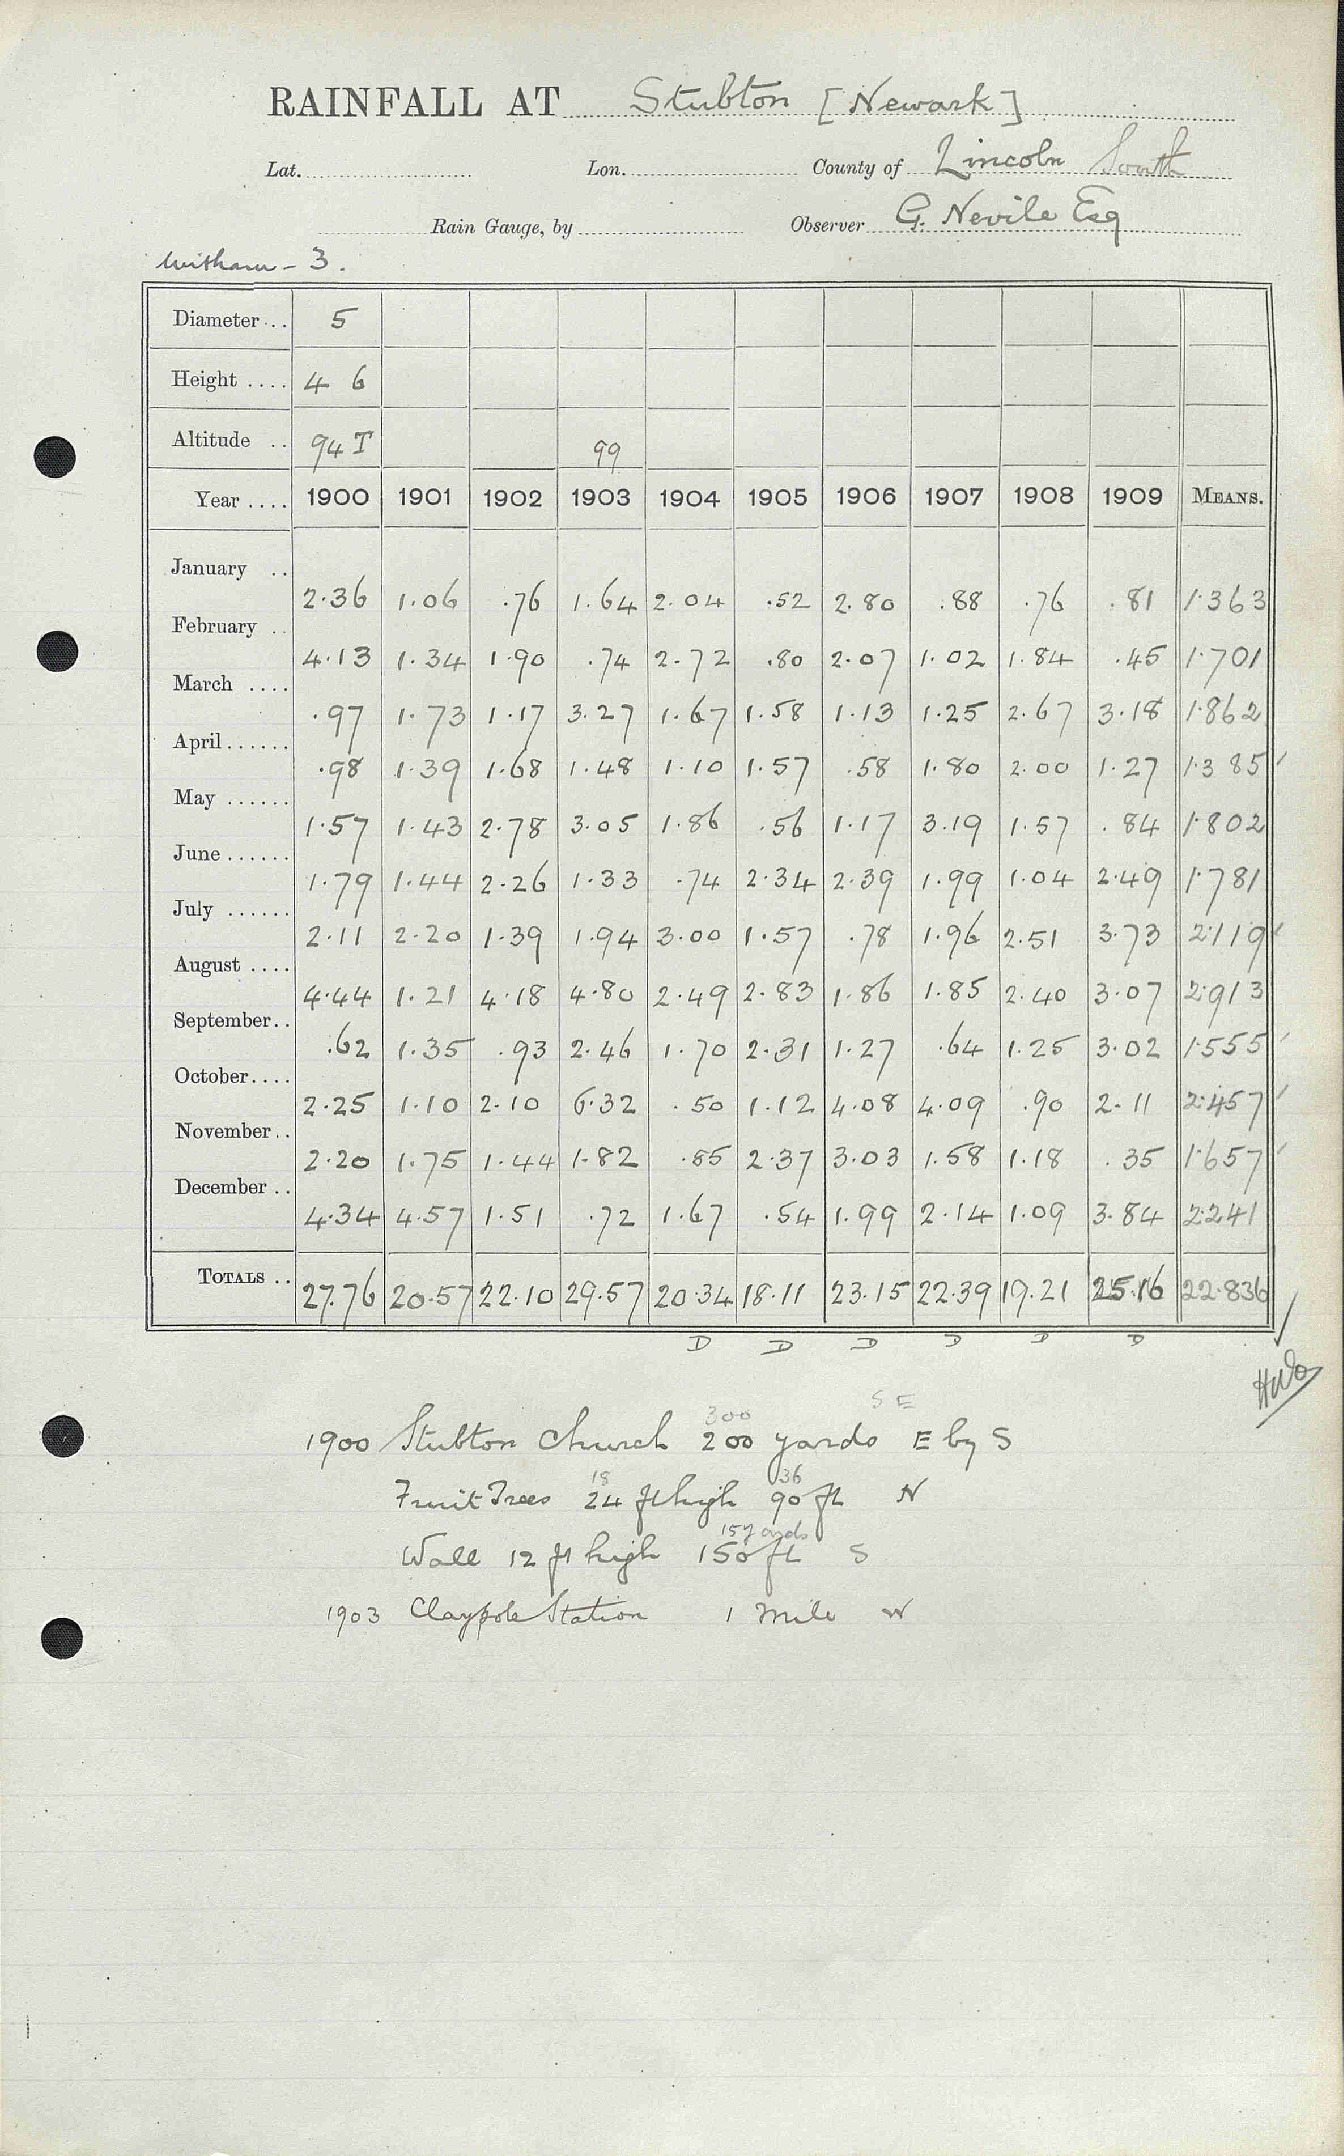 RAINFALL AT Stubton [Newark]
Lat. Lon. County of Lincoln South
Rain Gauge, by Observer G. Nevile Esq
Witham - 3.
Diameter .. 5
Height .... 4 6
Altitude .. 94 T 99
Year .... 1900 1901 1902 1903 1904 1905 1906 1907 1908 1909 MEANS.
January .. 2.36 1.06 .76 1.64 2.04 .52 2.80 .88 .76 .81 1.363
February .. 4.13 1.34 1.90 .74 2.72 .80 2.07 1.02 1.84 .45 1.701
March .... .97 1.73 1.17 3.27 1.67 1.58 1.13 1.25 2.67 3.18 1.862
April ...... .98 1.39 1.68 1.48 1.10 1.57 .58 1.80 2.00 1.27 1.385
May ...... 1.57 1.43 2.78 3.05 1.86 .56 1.17 3.19 1.57 .84 1.802
June ...... 1.79 1.44 2.26 1.33 .74 2.34 2.39 1.99 1.04 2.49 1.781
July ...... 2.11 2.20 1.39 1.94 3.00 1.57 .78 1.96 2.51 3.73 2.119
August .... 4.44 1.21 4.18 4.80 2.49 2.83 1.86 1.85 2.40 3.07 2.913
September .. .62 1.35 .93 2.46 1.70 2.31 1.27 .64 1.25 3.02 1.555
October .... 2.25 1.10 2.10 6.32 .50 1.12 4.08 4.09 .90 2.11 2.457
November .. 2.20 1.75 1.44 1.82 .85 2.37 3.03 1.58 1.18 .35 1.657
December .. 4.34 4.57 1.51 .72 1.67 .54 1.99 2.14 1.09 3.84 2.241
TOTALS .. 27.76 20.57 22.10 29.57 20.34 18.11 23.15 22.39 19.21 25.16 22.836
D D D D D D
300 SE
1900 Stubton Church 200 yards E by S
18 36
Fruit Trees 24 ft high 90 ft N
15 yards
Wall 12 ft high 150 ft S
1903 Claypole Station 1 Mile W